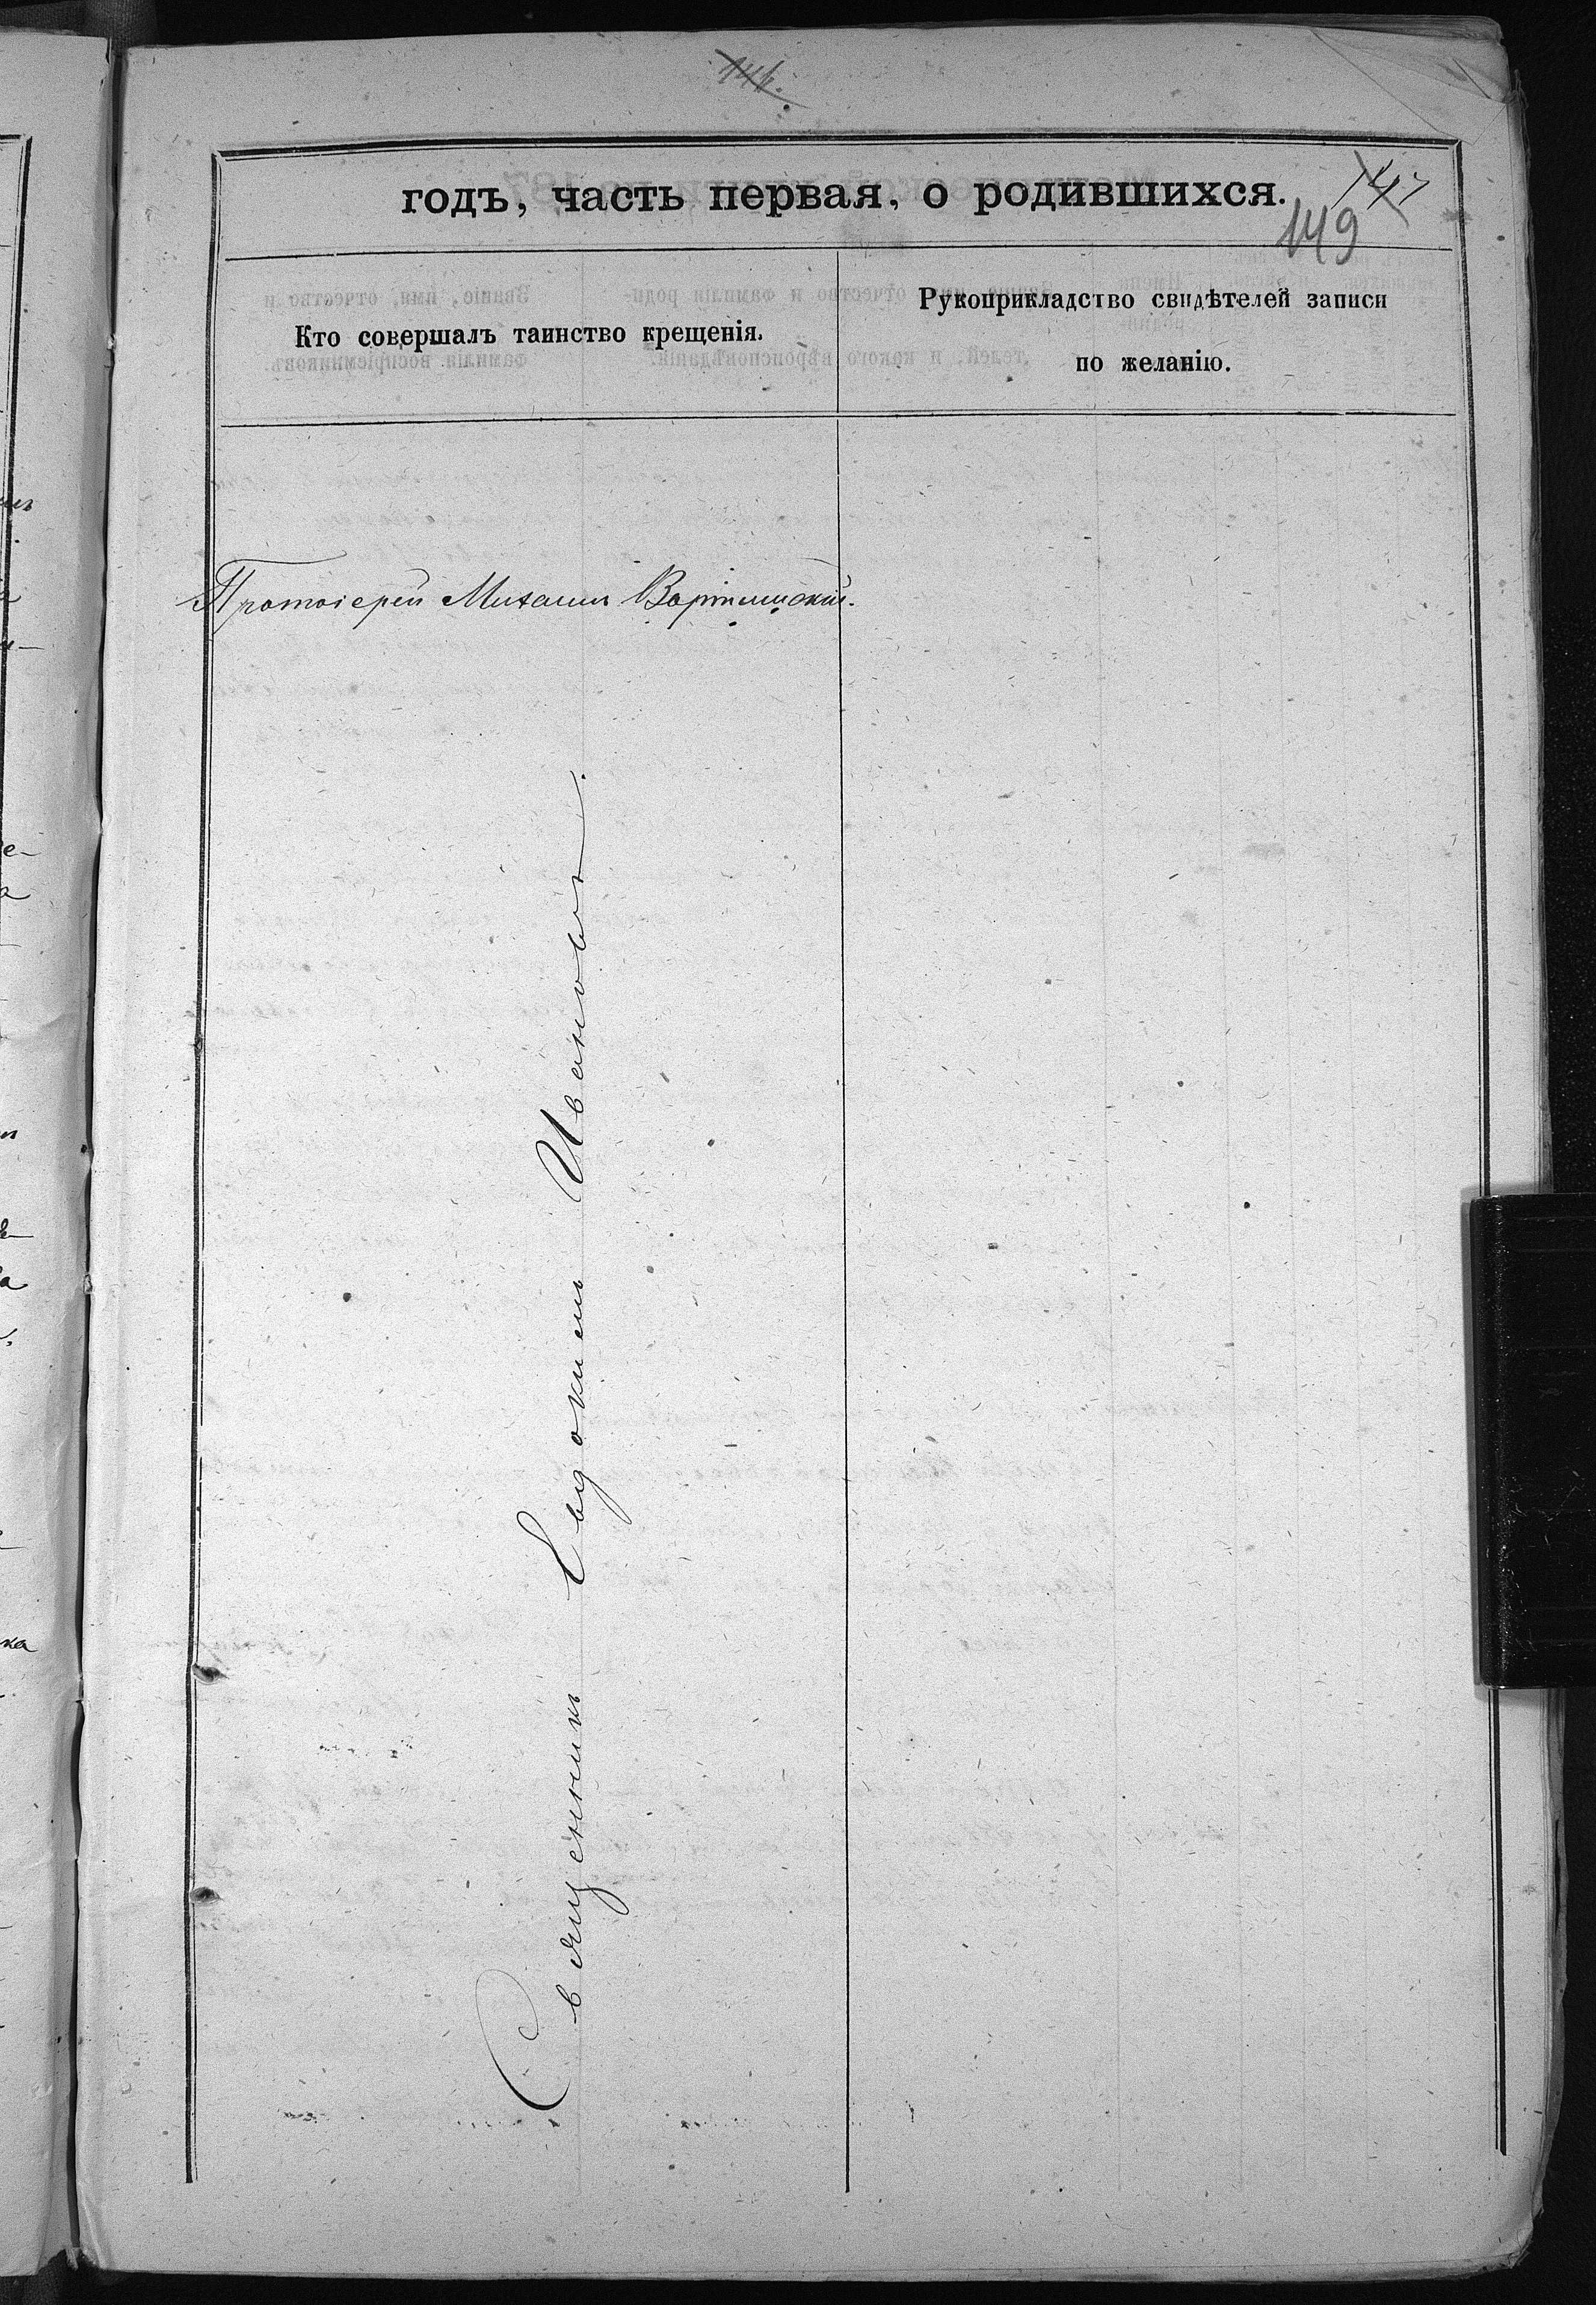 годъ, часть первая, о родившихся.
147
149
Кто совершалъ таинство крещенія.
Рукоприкладство свидѣтелей записи
по желанію.
Протоіерей Михаилъ
Священникъ Евдокимъ Ивановъ.